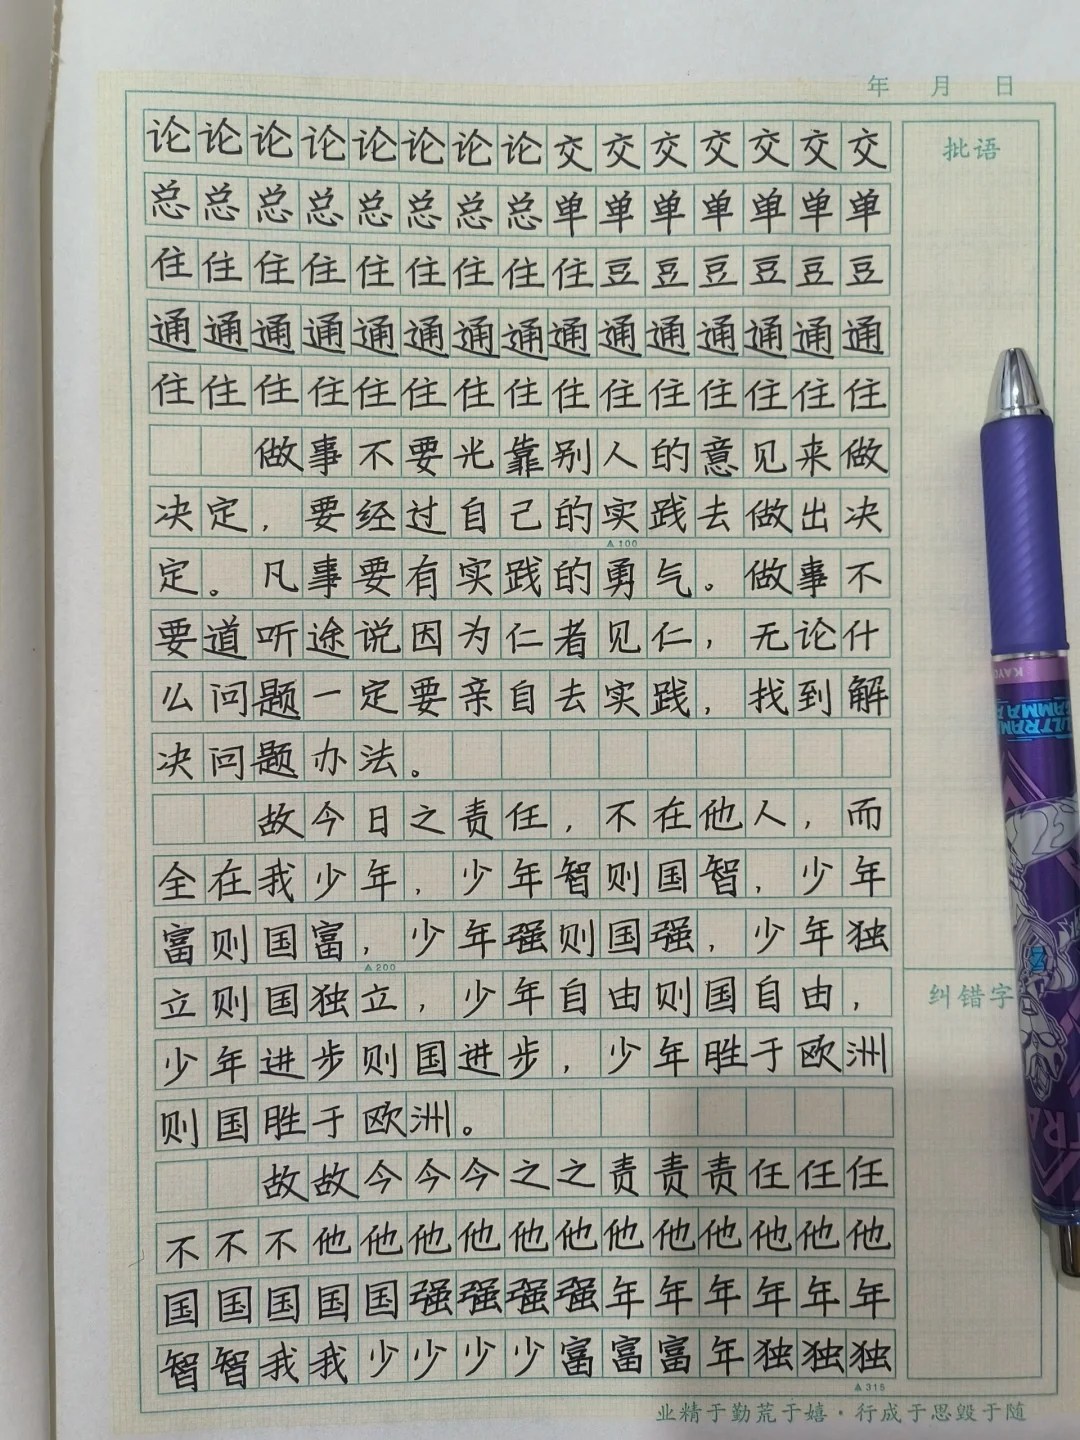 年 月 日
批语
论论论论论论论论交交交交交交交
总总总总总总总总单单单单单单单
住住住住住住住住住豆豆豆豆豆豆
通通通通通通通通通通通通通通通
住住住住住住住住住住住住住住住
做事不要光靠别人的意见来做
决定，要经过自己的实践去做出决
▲100
定。凡事要有实践的勇气。做事不
要道听途说因为仁者见仁，无论什
么问题一定要亲自去实践，找到解
决问题办法。
故今日之责任，不在他人，而
全在我少年，少年智则国智，少年
富则国富，少年强则国强，少年独
▲200
立则国独立，少年自由则国自由，
少年进步则国进步，少年胜于欧洲
则国胜于欧洲。
故故今今今之之责责责任任任
不不不他他他他他他他他他他他他
国国国国国强强强强年年年年年年
智智我我少少少少富富富年独独独
▲315
纠错字
业精于勤荒于嬉·行成于思毁于随